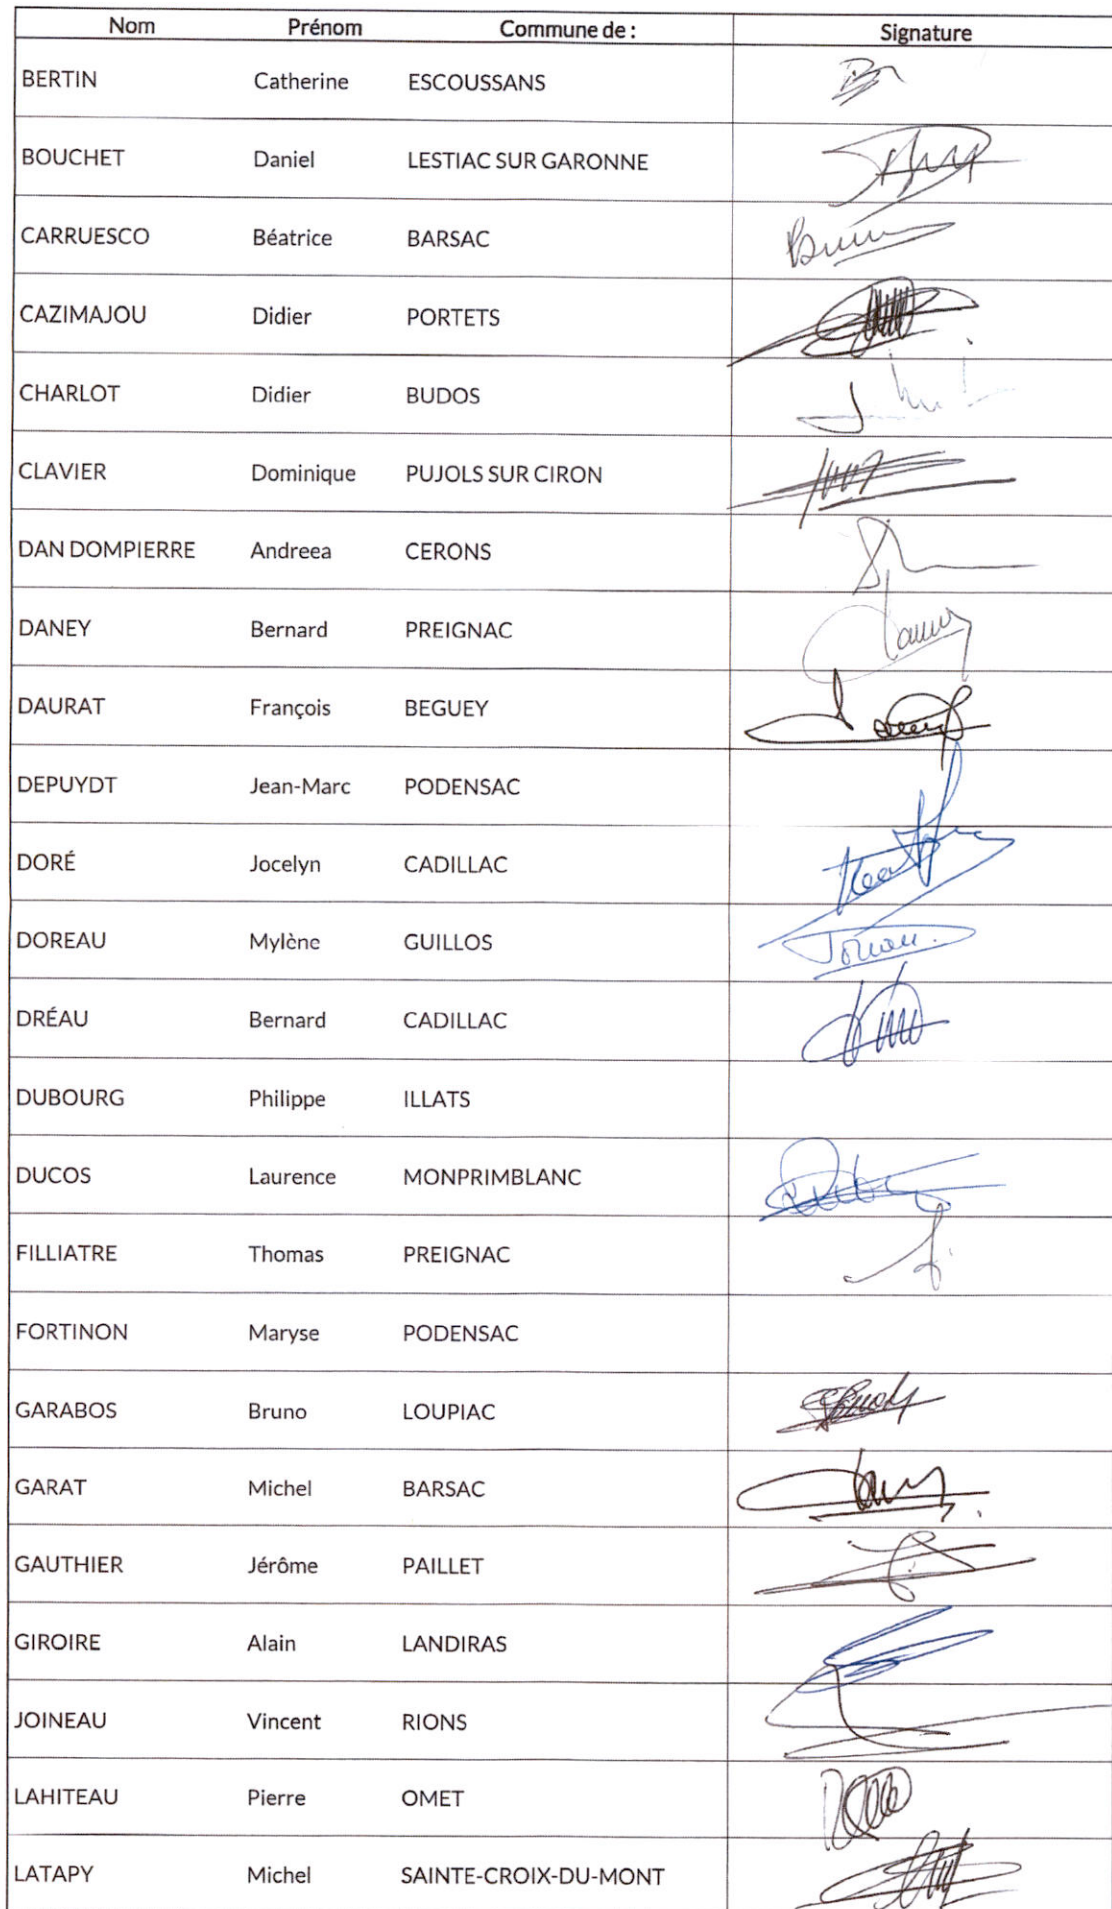 Nom Prénom Commune de : Signature
BERTIN Catherine ESCOUSSANS
BOUCHET Daniel LESTIAC SUR GARONNE
CARRUESCO Béatrice BARSAC
CAZIMAJOU Didier PORTETS
CHARLOT Didier BUDOS
CLAVIER Dominique PUJOLS SUR CIRON
DAN DOMPIERRE Andreea CERONS
DANEY Bernard PREIGNAC
DAURAT François BEGUEY
DEPUYDT Jean-Marc PODENSAC
DORÉ Jocelyn CADILLAC
DOREAU Mylène GUILLOS
DRÉAU Bernard CADILLAC
DUBOURG Philippe ILLATS
DUCOS Laurence MONPRIMBLANC
FILLIATRE Thomas PREIGNAC
FORTINON Maryse PODENSAC
GARABOS Bruno LOUPIAC
GARAT Michel BARSAC
GAUTHIER Jérôme PAILLET
GIROIRE Alain LANDIRAS
JOINEAU Vincent RIONS
LAHITEAU Pierre OMET
LATAPY Michel SAINTE-CROIX-DU-MONT